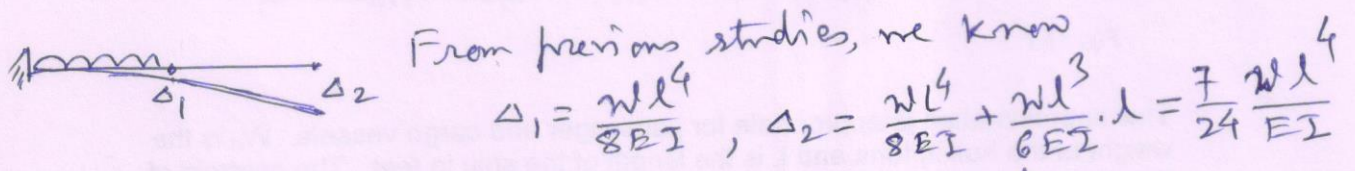 From previous studies, we know
Δ₁ = wl⁴/8EI, Δ₂ = wl⁴/8EI + wl³/6EI . l = 7/24 wl⁴/EI
Δ₁
Δ₂